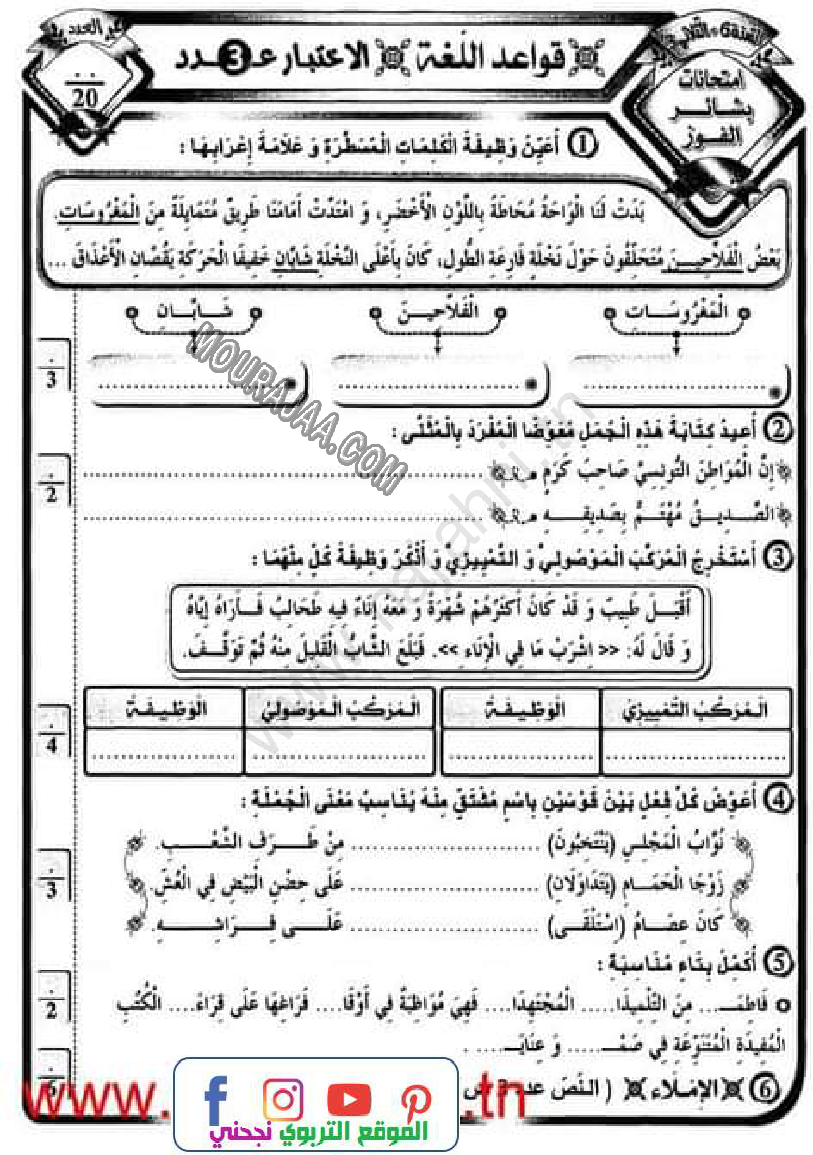 قواعد اللّغة الاعتبار عـ3ـدد
امتحانات
بشائر
الفوز
20
1 أُعَيِّنُ وَظِيفَةَ الْكَلِمَاتِ الْمُسَطَّرَةِ وَ عَلَامَةَ إِعْرَابِهَا :
بَدَتْ لَنَا الْوَاحَةُ مُحَاطَةً بِاللَّوْنِ الْأَخْضَرِ، وَ امْتَدَّتْ أَمَامَنَا طَرِيقٌ مُتَمَايِلَةٌ مِنَ الْمَغْرُوسَاتِ.
بَعْضُ الْفَلَّاحِيـنَ مُتَحَلِّقُونَ حَوْلَ نَخْلَةٍ فَارِعَةِ الطُّولِ، كَانَ بِأَعْلَى النَّخْلَةِ شَابَّانِ خَفِيفَا الْحَرَكَةِ يَقُصَّانِ الْأَعْذَاقَ ...
الْمَغْرُوسَـاتِ الْفَلَّاحِينَ شَـابَّـانِ
3
MOURAJAA.COM
2 أُعِيدُ كِتَابَةَ هَذِهِ الْجُمَلِ مُعَوِّضًا الْمُفْرَدَ بِالْمُثَنَّى :
إِنَّ الْمُوَاطِنَ التُّونِسِيَّ صَاحِبُ كَرَمٍ ........
2
الصَّـدِيـقُ مُهْتَـمٌّ بِصَدِيقِـــهِ ........
3 أَسْتَخْرِجُ الْمُرَكَّبَ الْمَوْصُولِيَّ وَ التَّمْيِيزِيَّ وَ أَذْكُرُ وَظِيفَةَ كُلٍّ مِنْهُمَا :
أَقْبَلَ طَبِيبٌ وَ قَدْ كَانَ أَكْثَرَهُمْ شُهْرَةً وَ مَعَهُ إِنَاءٌ فِيهِ طَحَالِبُ فَـأَرَاهُ إِيَّاهُ
وَ قَالَ لَهُ: << اِشْرَبْ مَا فِي الْإِنَاءِ >>. فَبَلَعَ الشَّابُّ الْقَلِيلَ مِنْهُ ثُمَّ تَوَقَّـفَ.
الـمُرَكَّبُ التَّمْيِيزِيُّ الْـوَظِـيـفَـةُ الْـمُرَكَّبُ الْـمَوْصُولِيُّ الْـوَظِـيـفَـةُ
4
4 أُعَوِّضُ كُلَّ فِعْلٍ بَيْنَ قَوْسَيْنِ بِاسْمٍ مُشْتَقٍّ مِنْهُ يُنَاسِبُ مَعْنَى الْجُمْلَةِ :
نُوَّابُ الْمَجْلِسِ (يُنْتَخَبُونَ) ........ مِنْ طَـــرَفِ الشَّعْـــبِ.
زَوْجَا الْحَمَـامِ (يَتَدَاوَلَانِ) ........ عَلَى حِضْنِ الْبَيْضِ فِي الْعُشِّ.
3
كَانَ عِصَـــامُ (اِسْتَلْقَى) ........ عَلَـــى فِـــرَاشِــــهِ.
5 أُكْمِلُ بِتَاءٍ مُنَاسِبَةٍ :
فَاطِمَـــ... مِنَ التِّلْمِيذَا..... الْمُجْتَهِدَا.... فَهِيَ مُوَاظِبَةٌ فِي أَوْقَا.... فَرَاغِهَا عَلَى قِرَاءَ.... الْكُتُبِ
2
الْمُفِيدَةِ الْمُتَنَوِّعَةِ فِي صَمْـ..... وَ عِنَايَـ.... .
6 الإِمْلَاء ( النّصّ عدد
5
www. .tn
الموقع التربوي نجحني